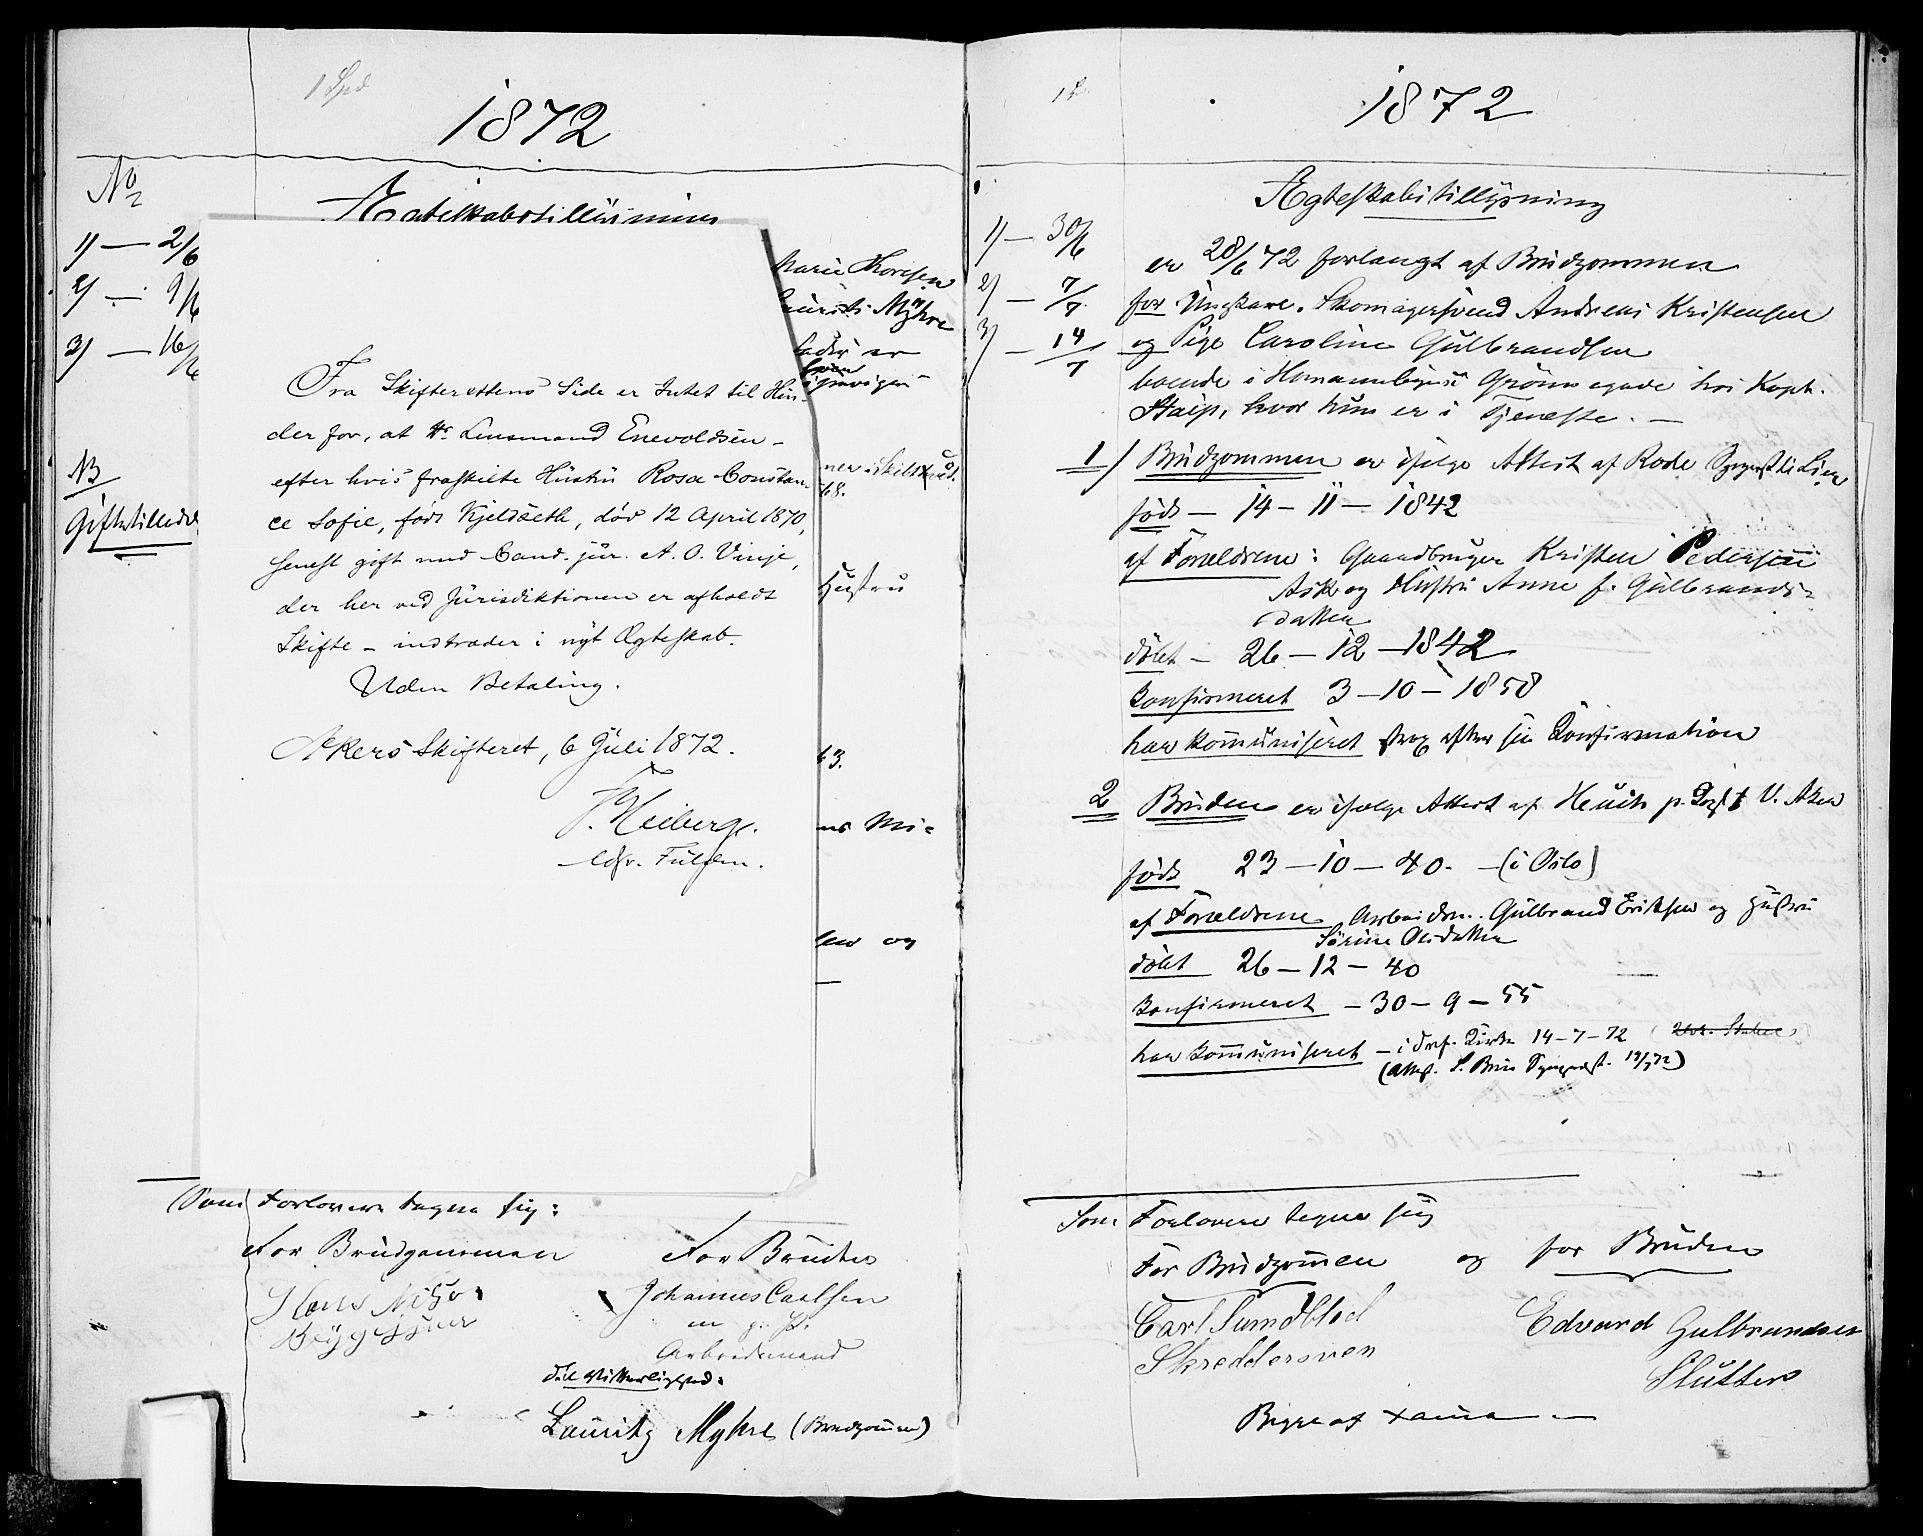 1 Spd
1872
No
Ægteskabstillysning
1) — 2/6
2) — 9/6
3) — 16/6
NB
Gifte tillede
Marie Thoresen
Myhre
er
Hustru
63.
og
Fra Skifterettens Side er Intet til Hin-
der for, at Hr. Lensmand Enevoldsen –
efter hvis fraskilte Hustru Rosa Constan-
ce Sofie, født Kjeldseth, død 12 April 1870,
senest gift med Cand. jur. A. O. Vinje,
der her ved Jurisdiktionen er afholdt
Skifte – indtræder i nyt Ægteskab.
Uden Betaling.
Akers Skifteret, 6 Juli 1872.
Heiberg.
Som Forlovere tegne sig:
For Brudgommen
For Bruden
Hans
Johannes Carlsen
m. p. P.
Arbeidsmand
til Vitterlighed:
Lauritz Myhre (Brudgommen)
1872
Ægteskabstillysning
1) — 30/6
2) — 7/7
3) — 14/7
er 28/6 72 forlangt af Brudgommen
for Ungkarl. Skomagersvend Andreas Kristensen
og Pige Caroline Gulbrandsen
boende i Homannsbyen Grønnegade hos Kapt.
hvor hun er i Tjeneste. —
1) Brudgommen er ifølge Attest af Rode Sognepræst til Lier
født — 14 – 11 – 1842
af Forældrene: Gaardbruger Kristen Pedersen
Ask og Hustru Anne f. Gulbrands-
datter
døbt — 26 – 12 – 1842
konfirmeret 3 – 10 – 1858
har kommuniseret strax efter sin Konfirmation
2 Bruden er ifølge Attest af Heuch p. V. Aker
født 23 – 10 – 40. – (i Oslo)
af Forældrene Arbeidsm. Gulbrand Eriksen og Hustru
Sørine Olsdatter
døbt 26 – 12 – 40
konfirmeret – 30 – 9 – 55
har kommuniseret – i Kirke 14 – 7 – 72
Som Forlovere tegne sig
For Brudgommen og for Bruden
Carl Sundblad
Skreddersven
Edvard Gulbrandsen
Slutter